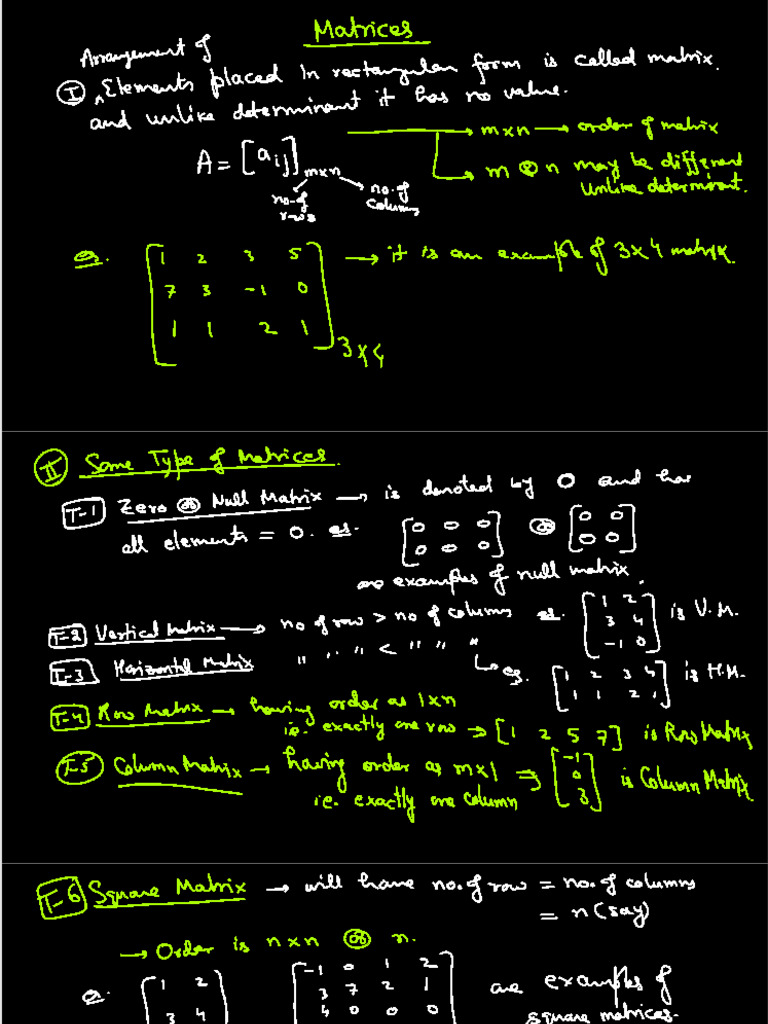 Matrices
Arrangement of
I Elements placed in rectangular form is called matrix.
and unlike determinant it has no value.
A = [aij]m×n → m×n → order of matrix
→ m or n may be different
unlike determinant.
no. of rows
no. of columns
eg.
1 2 3 5
7 3 -1 0
1 1 2 1
3×4
→ it is an example of 3×4 matrix.
II Some Type of Matrices.
T-1 Zero or Null Matrix → is denoted by O and has
all elements = 0. eg. [0 0 0 or [0 0
0 0 0] 0 0]
are examples of null matrix.
T-2 Vertical Matrix → no of row > no of columns eg. [1 2
3 4
-1 0] is V.M.
T-3 Horizontal Matrix " " " < " " "
↳ eg. [1 2 3 4
1 1 2 1] is H.M.
T-4 Row Matrix → having order as 1×n
i.e. exactly one row ⇒ [1 2 5 7] is Row Matrix
T-5 Column Matrix → having order as m×1 ⇒ [-1
0
3] is Column Matrix
i.e. exactly one column
T-6 Square Matrix → will have no. of row = no. of columns
= n (say)
→ Order is n×n or n.
eg. [1 2
3 4
[-1 0 1 2
3 7 2 1
4 0 0 0
are examples of
square matrices.